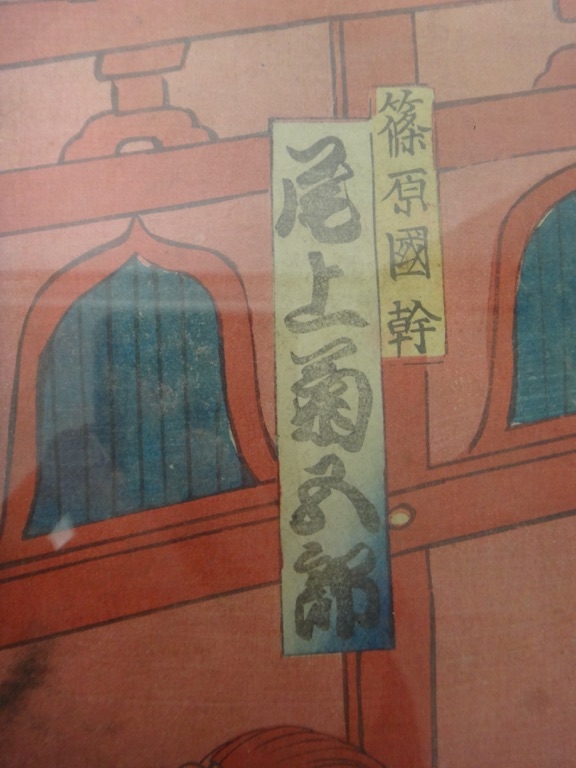 篠原國幹
尾上菊五郎